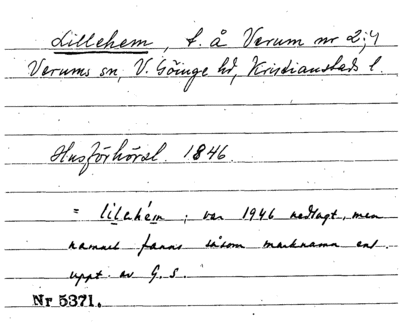 Lillehem, t. å Verum nr 2;4
Verums sn, V. Göinge hd, Kristianstads l.
Husförhörsl. 1846.
= lilehém ; var 1946 nedlagt, men
namnet fanns såsom marknamn enl.
uppt. av G. S.
Nr 5371.